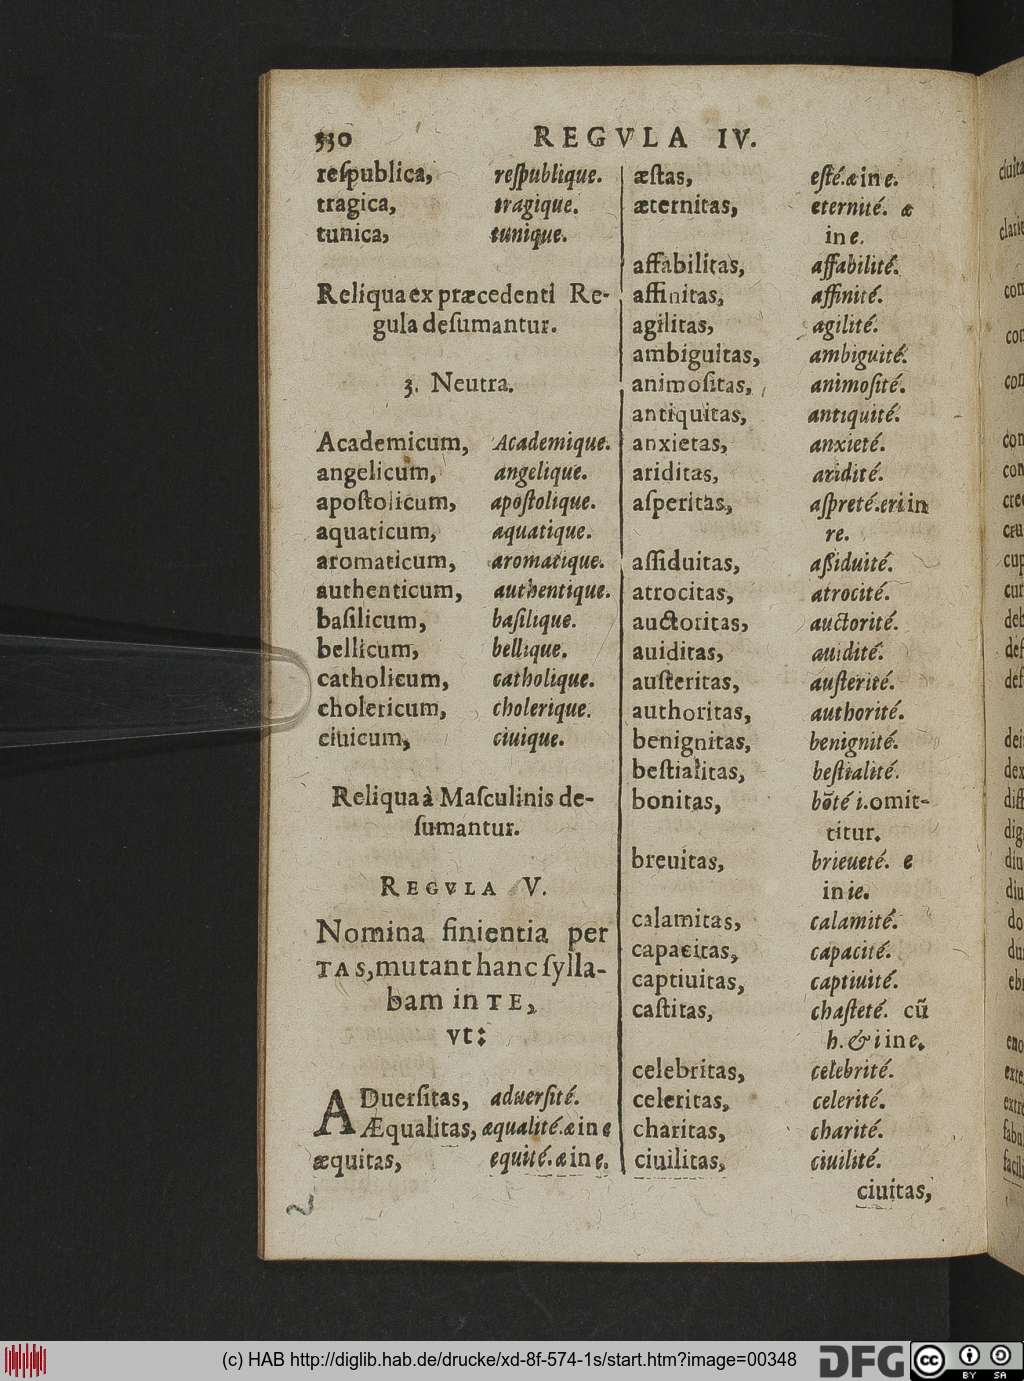 330 REGVLA IV.
reſpublica, reſpublique.
tragica, tragique.
tunica, tunique.
Reliqua ex præcedenti Re-
gula deſumantur.
3. Neutra.
Academicum, Academique.
angelicum, angelique.
apoſtolicum, apoſtolique.
aquaticum, aquatique.
aromaticum, aromatique.
authenticum, authentique.
baſilicum, baſilique.
bellicum, bellique.
catholicum, catholique.
cholericum, cholerique.
ciuicum, ciuique.
Reliqua à Maſculinis de-
ſumantur.
REGVLA V.
Nomina finientia per
TAS, mutant hanc ſylla-
bam in TE,
vt:
ADuerſitas, aduerſité.
Æqualitas, æqualité. æ in e
æquitas, equité. æ in e.
æſtas, eſté. æ in e.
æternitas, eternité. æ
in e.
affabilitas, affabilité.
affinitas, affinité.
agilitas, agilité.
ambiguitas, ambiguité.
animoſitas, animoſité.
antiquitas, antiquité.
anxietas, anxieté.
ariditas, aridité.
aſperitas, aſpreté. eri in
re.
aſſiduitas, aßiduité.
atrocitas, atrocité.
auctoritas, auctorité.
auiditas, auidité.
auſteritas, auſterité.
authoritas, authorité.
benignitas, benignité.
beſtialitas, beſtialité.
bonitas, bõté i. omit-
titur.
breuitas, brieueté. e
in ie.
calamitas, calamité.
capacitas, capacité.
captiuitas, captiuité.
caſtitas, chaſteté. cũ
h. & i in e.
celebritas, celebrité.
celeritas, celerité.
charitas, charité.
ciuilitas, ciuilité.
ciuitas,
(c) HAB http://diglib.hab.de/drucke/xd-8f-574-1s/start.htm?image=00348
DFG
cc BY SA